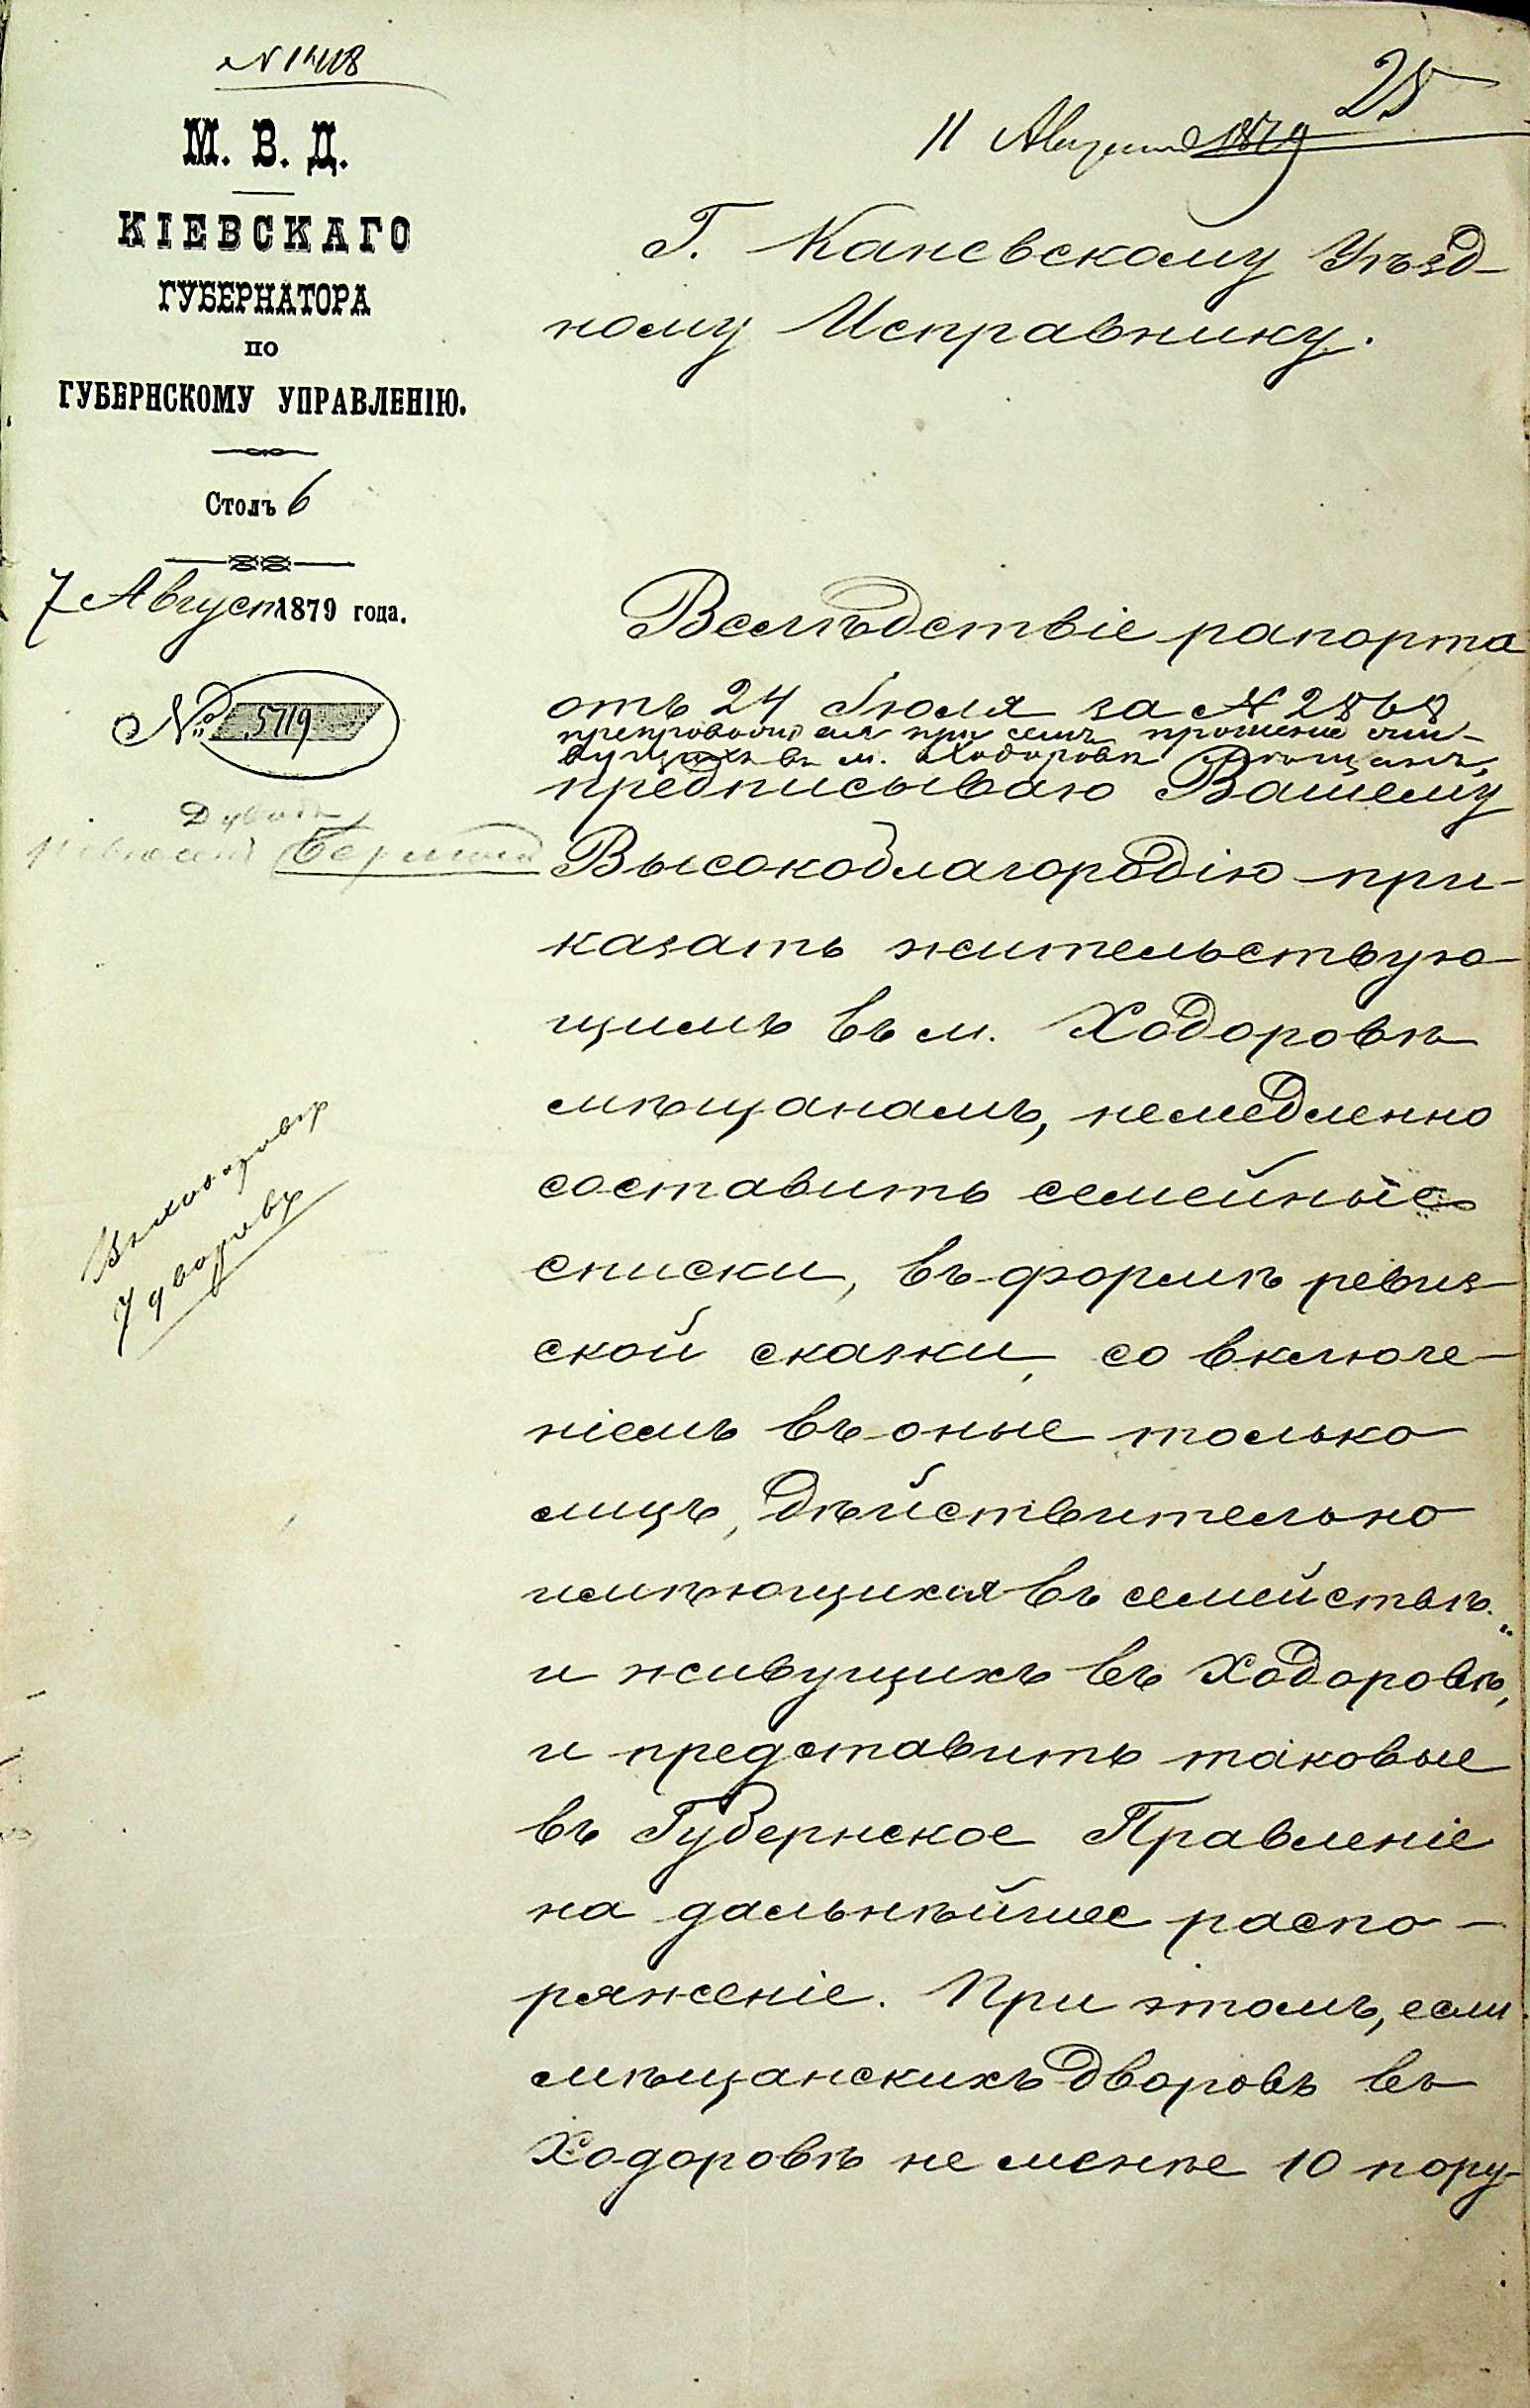 25
11 Августа 1879
М. В. Д.
КІЕВСКАГО
ГУБЕРНАТОРА
ПО
ГУБЕРНСКОМУ УПРАВЛЕНІЮ.
Столъ 6
7 Август 1879 года.
№ 5719
7 дворовъ
Г. Каневскому Уѣзд-
ному Исправнику.
Вслѣдствіе рапорта
отъ 24 Іюля за № 2868
при семъ прошеніе
въ м. Ходоровѣ
предписываю Вашему
Высокоблагородію при-
казать жительствую-
щимъ въ м. Ходоровѣ
мѣщанамъ, немедленно
составить семейные
списки, въ формѣ ревиз-
ской сказки, со включе-
ніемъ въ оные только
лицъ, дѣйствительно
имѣющихся въ семействѣ
и живущихъ въ Ходоровѣ,
и представить таковые
въ Губернское Правленіе
на дальнѣйшее распо-
ряженіе. При этомъ, если
мѣщанскихъ дворовъ въ
Ходоровѣ не менѣе 10 пору-